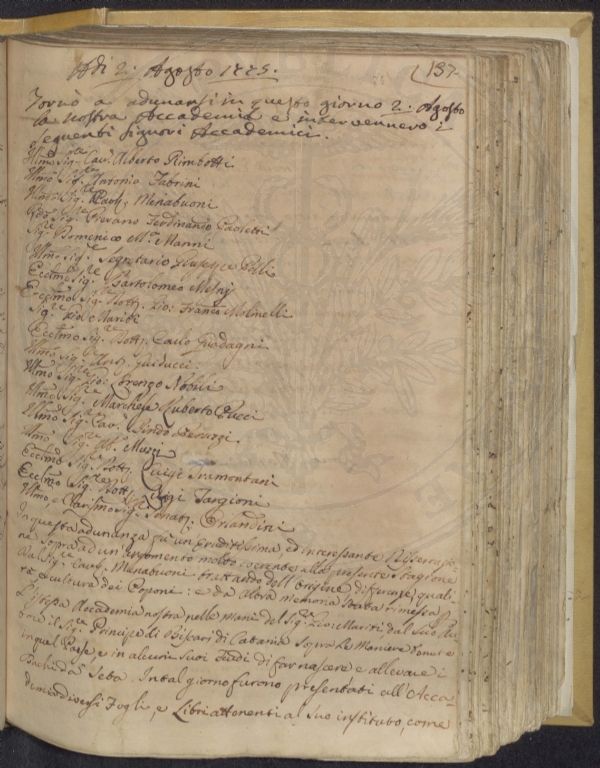 Adi 2. Agosto 1775.
137
Tornò a adunarsi in questo giorno 2. Agosto
la nostra Accademia e intervennero i
seguenti Signori Accademici.
Illmo Sigre Cav. Alberto Rimbotti
Illmo Sigre Antonio Fabrini
Illmo Sigre Menabuoni
Sigre Pievano Ferdinando Paoletti
Sigre Domenico Ma. Manni
Illmo Sigre Segretario Giuseppe Pelli
Eccmo Sigre Bartolomeo Mesny
Eccmo Sigre Dott. Gio: Franco Molinelli
Sigre
Eccmo Sigre Dott. Carlo Guadagni
Illmo Sigre Guiducci
Illmo Sigre Gio: Lorenzo Nobili
Illmo Sigre Marchese Ruberto Pucci
Illmo Sigre Cav. Bindo Peruzzi.
Illmo Sigre Ab. Muzzi
Eccmo Sigre Dott. Luigi Tramontani
Eccmo Sigre Dott. Luigi Targioni
Illmo, e Clarissmo Sigre Senat. Orlandini
In questa adunanza fù un Eruditissima ed interessante
sopra ad un Argomento molto coerente alla presente stagione
dal Sigre Menabuoni trattando dell'origine di
e cultura dei Poponi: e da altra memoria stata rimessa
Accademia nostra nelle mani del Sigre Gio: Mariti dal suo
il Sigre Principe di Biscari di Catania sopra le Maniere tenute
in quel Paese, e in alcuni suoi Feudi di far nascere e allevare i
Bachi da Seta. In tal giorno furono presentati all'Acca-
demia diversi Fogli, e Libri attenenti al suo instituto, come